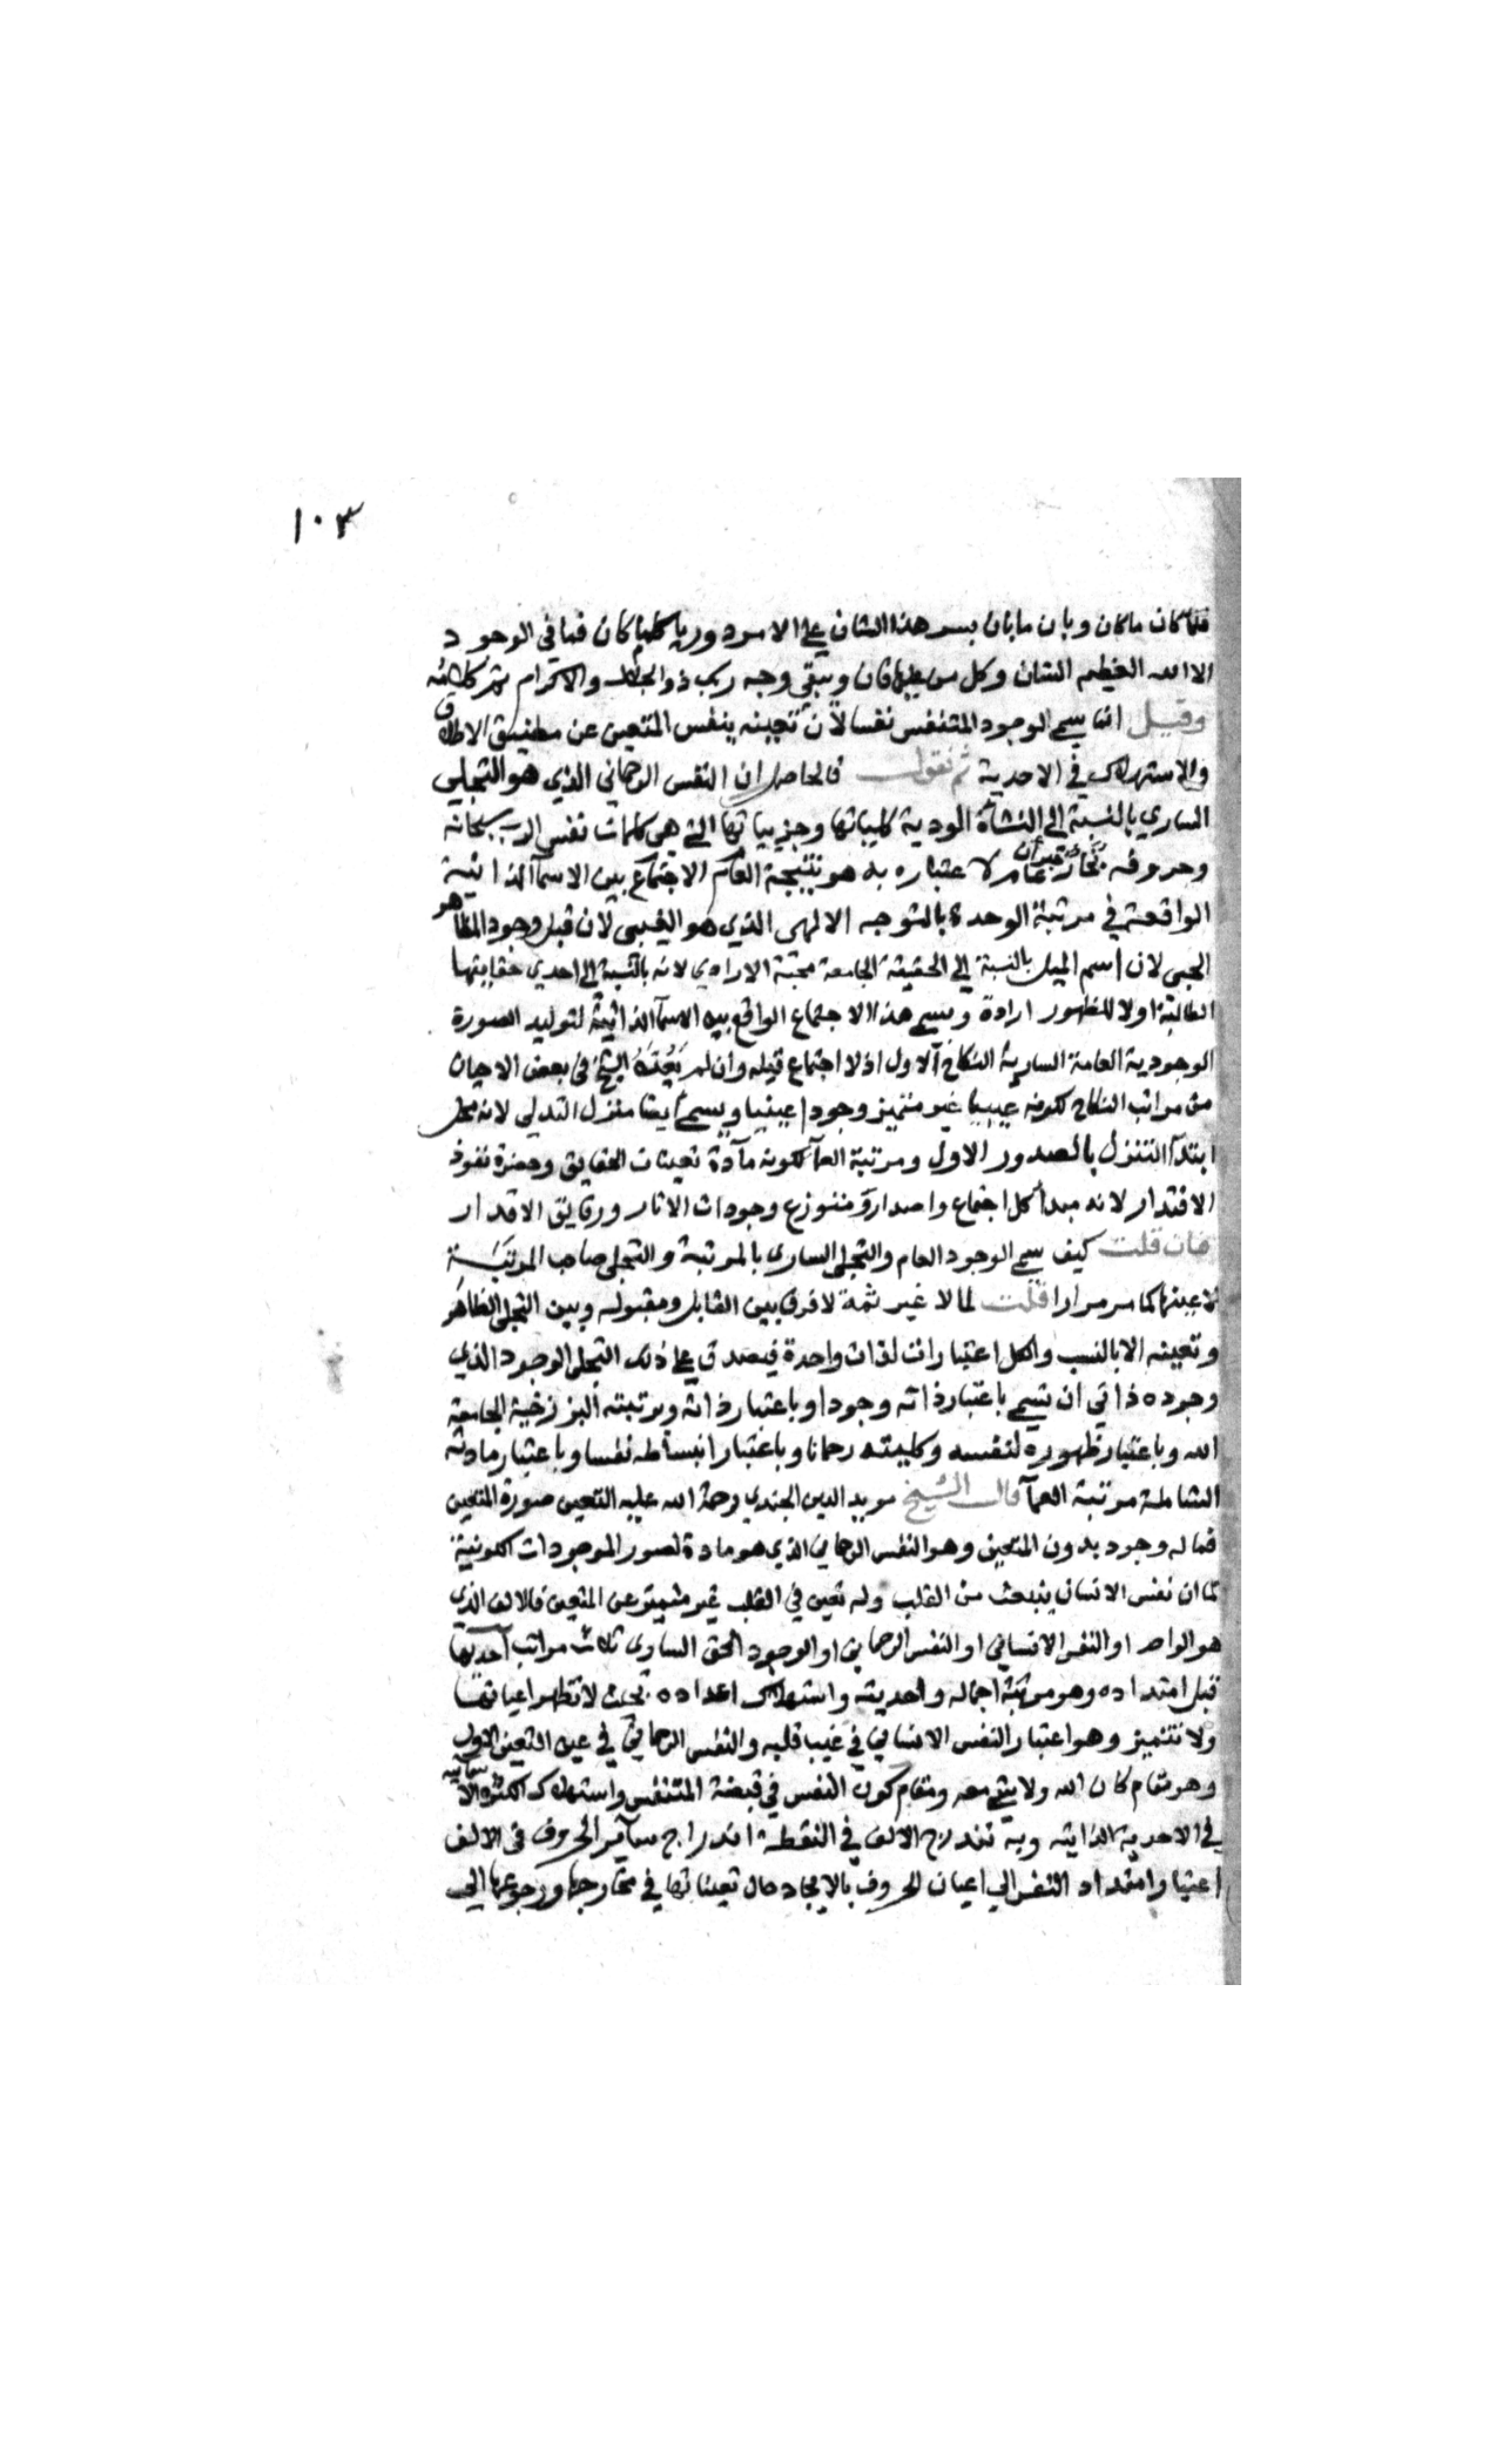 ١٠٣
فلما كان ماكان وبان مابان بسر هذا الشان على الامر دوريا كلما كان فما في الوجود
الا الله العظيم الشان وكل من عليها فان ويبقى وجه ربك ذو الجلال والاكرام
وقيل انما سمي الوجود المتنفس نفسا لان تعينه ينفس المتعين عن مضيق الاطلاق
والاستهلاك في الاحدية ثم نقول فالحاصل ان النفس الرحماني الذي هو التجلي
الساري بالنسبة الى النشأة كلياتها وجزيياتها التي هي كلمات نفس الرب سبحانه
وحروفه لا عتباره به هو نتيجة الاجتماع بين الاسمآ الذاتية
الواقعة في مرتبة الوحدة بالتوجه الالهي الذي هو الغيبى لان قبل وجود المظاهر
الحبى لان اسم الميل بالنسبة الى الحقيقة الجامعة محبة الارادي لانه بالنسبة الى احدي حقايقها
الطالبة اولا للظهور ارادة ويسمى هذا الاجتماع الواقع بين الاسمآ الذاتية لتوليد الصورة
الوجودية العامة السارية النكاح الاول اذ لا اجتماع قبله وان لم يعده الشيخ في بعض الاحيان
من مراتب النكاح لكونه غيبيا غير متميز وجودا عينيا ويسمى ايضا منزل التدلي لانه محل
ابتدآ التنزل بالصدور الاول ومرتبة العمآ لكونه مآدة تعينات الحقايق وحضرة نفوذ
الاقتدار لانه مبدأ كل اجتماع واصدار وتوزع وجودات الاثار ورقايق الاقدار
فان قلت كيف سمي الوجود العام والتجلى السارى بالمرتبة والتجلى صاحب المرتبة
لا عينها كما مر مرارا قلت لما لا غير ثمة لا فرق بين القابل ومقبوله وبين التجلى الظاهر
وتعينه الا بالنسب والكل اعتبارات لذات واحدة فيصدق على ذلك التجلى الوجود الذي
وجوده ذاتي ان يسمى باعتبار ذاته وجودا وباعتبار ذاته ومرتبته البرزخية الجامعة
الله وباعتبار ظهوره لنفسه وكليته رحمانا وباعتبار انبساطه نفسا وباعتبار مادته
الشاملة مرتبة العمآ قال الشيخ مويد الدين الجندي رحمة الله عليه التعين صورة المتعين
فما له وجود بدون المتعين وهو النفس الرحماني الذي هو مادة لصور الموجودات الكونية
كما ان نفس الانسان ينبعث من القلب وله تعين في القلب غير متميز عن المتعين فالالف الذي
هو الواحد او النفس الانساني او النفس الرحماني او الوجود الحق الساري ثلاث مراتب احديها
قبل امتداده وهو مرتبة اجماله واحديته واستهلاك اعداده بحيث لا تظهر اعيانها
ولا تتميز وهو اعتبار النفس الانساني في غيب قلبه والنفس الرحماني في عين التعين الاول
وهو مقام كان الله ولا شي معه ومقام كون النفس في قبضة المتنفس واستهلاك الكثرة الاسمآئيه
في الاحدية الذاتيه وبه تندرج الالف في النقطة اندراج سآئر الحروف في الالف
اعتبار امتداد النفس الى اعيان الحروف بالايجاد حال تعيناتها في مخارجها ورجوعها الى